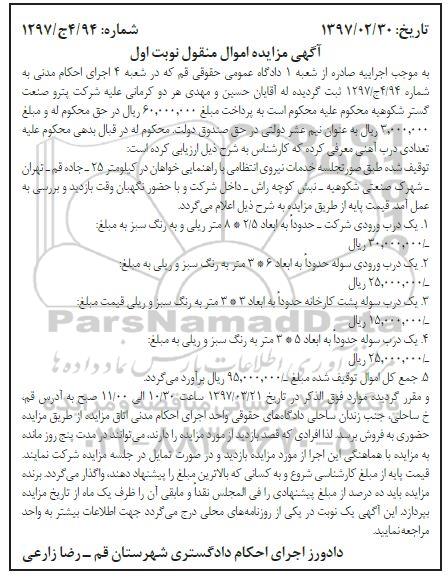 تاریخ: ۱۳۹۷/۰۲/۳۰
شماره: ۴/۹۴ج/۱۲۹۷
آگهی مزایده اموال منقول نوبت اول
به موجب اجراییه صادره از شعبه ۱ دادگاه عمومی حقوقی قم که در شعبه ۴ اجرای احکام مدنی به
شماره ۴/۹۴ج/۱۲۹۷ ثبت گردیده له آقایان حسین و مهدی هر دو کرمانی علیه شرکت پترو صنعت
گستر شکوهیه محکوم علیه محکوم است به پرداخت مبلغ ۶۰,۰۰۰,۰۰۰ ریال در حق محکوم له و مبلغ
۳,۰۰۰,۰۰۰ ریال به عنوان نیم عشر دولتی در حق صندوق دولت. محکوم له در قبال بدهی محکوم علیه
تعدادی درب آهنی معرفی کرده که کارشناس به شرح ذیل ارزیابی کرده است:
توقیف شده طبق صورتجلسه خدمات نیروی انتظامی با راهنمایی خواهان در کیلومتر ۲۵ ـ جاده قم ـ تهران
ـ شهرک صنعتی شکوهیه ـ نبش کوچه راش ـ داخل شرکت و با حضور نگهبان وقت بازدید و بررسی به
عمل آمد. قیمت پایه از طریق مزایده به شرح ذیل اعلام می‌گردد.
۱. یک درب ورودی شرکت ـ حدوداً به ابعاد ۲/۵ * ۸ متر ریلی و به رنگ سبز به مبلغ:
ـ/۳۰,۰۰۰,۰۰۰ ریال
۲. یک درب ورودی سوله حدوداً به ابعاد ۶ * ۳ متر به رنگ سبز و ریلی به مبلغ:
ـ/۲۵,۰۰۰,۰۰۰ ریال
۳. یک درب سوله پشت کارخانه حدوداً به ابعاد ۳ * ۳ متر به رنگ سبز و ریلی قیمت مبلغ:
ـ/۱۵,۰۰۰,۰۰۰ ریال
۴. یک درب سوله حدوداً به ابعاد ۵ * ۳ متر به رنگ سبز و ریلی به مبلغ:
ـ/۲۵,۰۰۰,۰۰۰ ریال
۵. جمع کل اموال توقیف شده مبلغ ـ/۹۵,۰۰۰,۰۰۰ ریال برآورد می‌گردد.
و مقرر گردیده موارد فوق الذکر در تاریخ ۱۳۹۷/۰۳/۲۱ ساعت ۱۰/۳۰ الی ۱۱/۰۰ صبح به آدرس قم،
خ ساحلی، جنب زندان ساحلی دادگاه‌های حقوقی واحد اجرای احکام مدنی اتاق مزایده از طریق مزایده
حضوری به فروش برسد. لذا افرادی که قصد بازدید از مورد مزایده را دارند، می‌توانند در مدت پنج روز مانده
به مزایده با هماهنگی این اجرا از مورد مزایده بازدید و در صورت تمایل در جلسه مزایده شرکت نمایند.
قیمت پایه از مبلغ کارشناسی شروع و به کسانی که بالاترین مبلغ را پیشنهاد دهند، واگذار می‌گردد. برنده
مزایده باید ده درصد از مبلغ پیشنهادی را فی المجلس نقداً و مابقی آن را ظرف یک ماه از تاریخ مزایده
بپردازد. این آگهی یک نوبت در یکی از روزنامه‌های محلی درج می‌گردد جهت اطلاعات بیشتر به واحد
مراجعه نمایید.
دادورز اجرای احکام دادگستری شهرستان قم ـ رضا زارعی
ParsNamadData